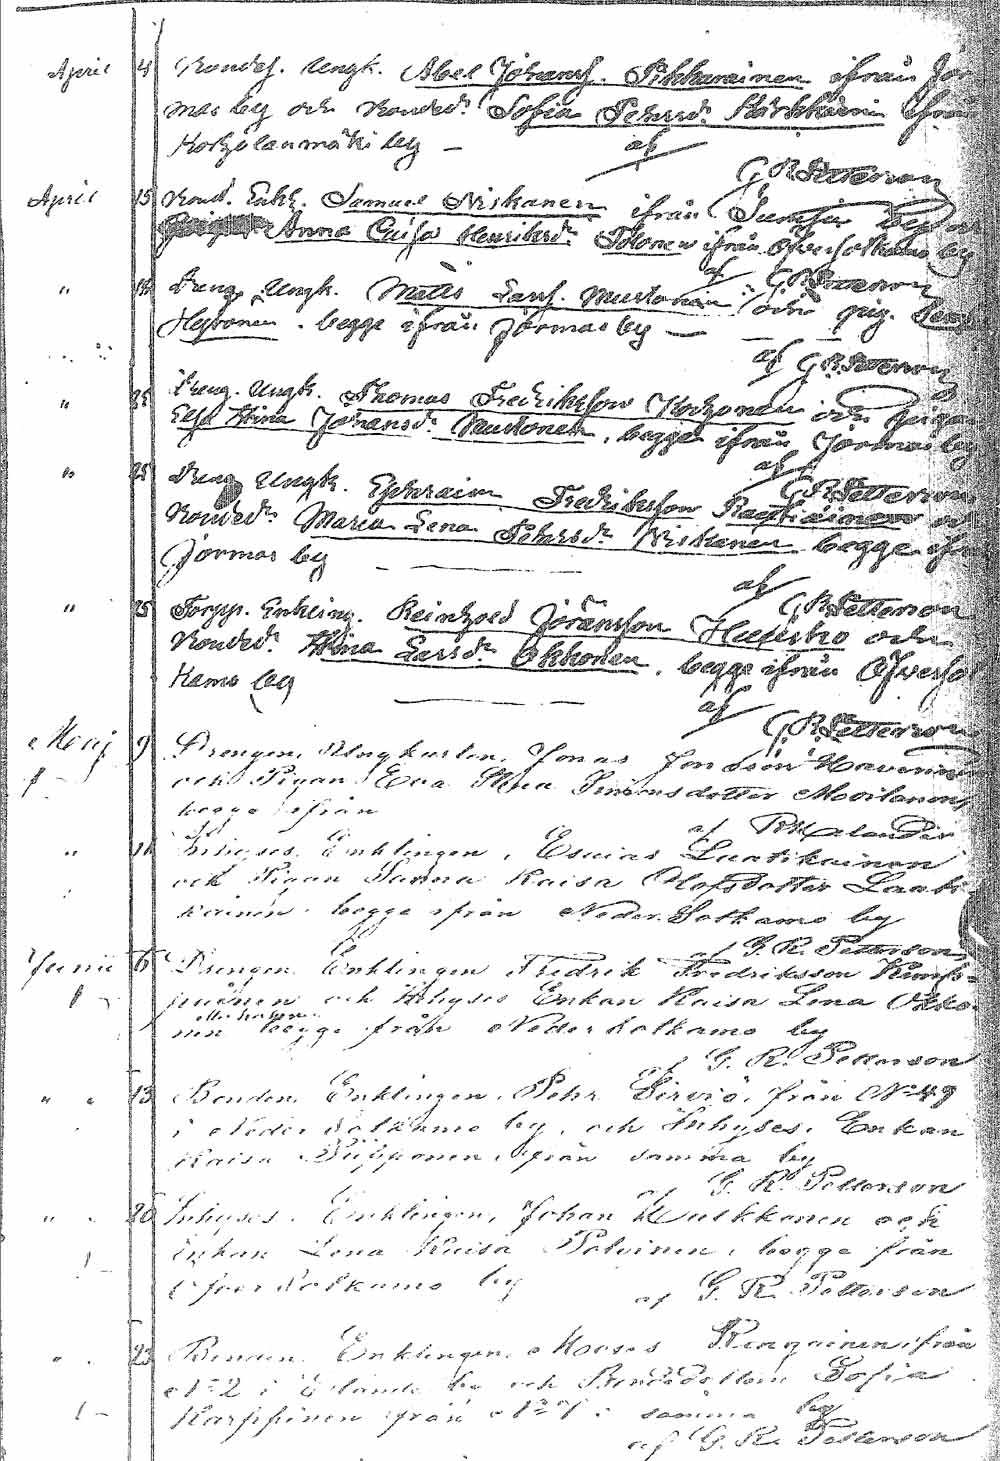 April 4 Bondes. Ungk. Abel Johanss. Pikkarainen ifrån Jor
mas by och Bonded:r Sofia Pehrsd:r Kärkkäinen ifrån
Korholanmäki by —
af
G R Petterson
April 15 Bond. Enkl. Samuel Niskanen ifrån by och
Anna Caisa Henriksd:r Tolonen ifrån Öfversotkamo by
af G R Petterson
" 18 Dreng. Ungk. Matts Larss. Mustonen och pig.
Heikkinen. begge ifrån Jormas by —
af G R Petterson
" Dreng. Ungk. Thomas Fredriksson Korhonen och Pigan
Elsa Stina Johansd:r Mustonen, begge ifrån Jormas by
af G R Petterson
" 25 Dreng Ungk. Ephraim Fredriksson och
Bonded:r Maria Lena Pehrsd:r Niskanen begge ifrån
Jormas by
af G R Petterson
" 25 Torpp. Enkling. Reinhold Jöransson och
Bonded:r Stina Larsd:r Okkonen, begge ifrån Öfversot
kamo by
af G R Petterson
Maij 9 Drengen, Ungkarlen, Jonas Jonsson Haverinen
och Pigan Eva Stina Simonsdotter Moilanen,
begge ifrån
af
" 11 Inhyses Enklingen, Esaias Laatikainen
och Pigan Sanna Kaisa Olofsdotter Laati
kainen. begge ifrån Neder Sotkamo by
af G. R. Petterson
Junii 6 Drengen Enklingen Fredrik Fredriksson
och Inhyses Enkan Kaisa Lena Okko-
nen begge från Nedersotkamo by
af G. R. Petterson
" " 13 Bonden Enklingen, Pehr Sirviö, från No 49
i Neder Sotkamo by, och Inhyses. Enkan
Kaisa Piipponen, från samma by
af G. R. Petterson
" " 20 Inhyses. Enklingen, Johan Kulkkonen och
Enkan Lena Kaisa Polvinen, begge från
Öfver Sotkamo by
af G. R. Petterson
" " 23 Bonden. Enklingen. Moses ifrån
No 2 i by och Bondedottern Sofia
Karppinen från No 7 i samma by
af G. R. Petterson